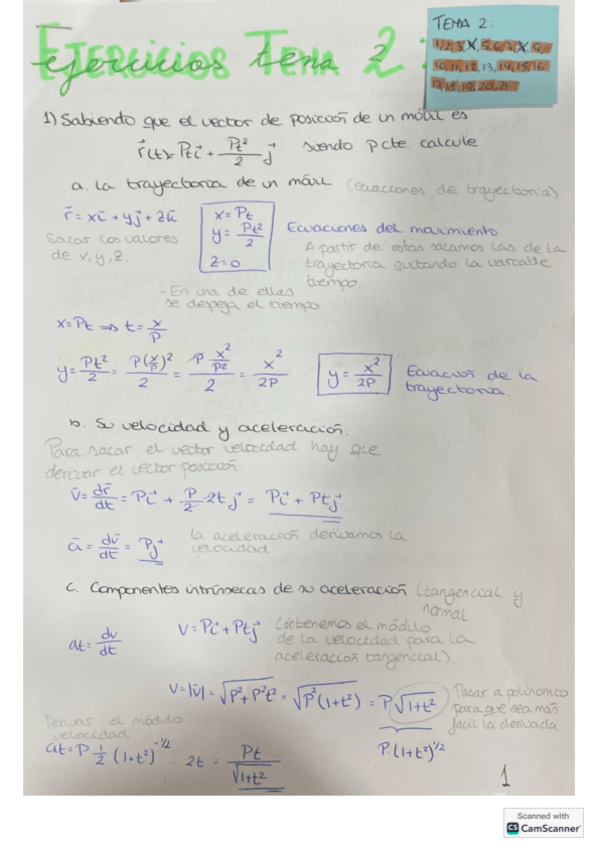 TEMA 2:
1,2,3,X,5,6,7,X,9,
10,11,12,13,14,15,16
17,18,19,20,21
EJERCICIOS TEMA 2:
Ejercicios tema 2
1) Sabiendo que el vector de posición de un móvil es
r⃗(t)= Pt i⃗ + Pt²/2 j⃗ siendo p cte. calcule
a. La trayectoria de un móvil (ecuaciones de trayectoria)
r̄ = xī + yj̄ + zk̄
x = Pt
y = Pt²/2
z = 0
Ecuaciones del movimiento
Sacar los valores
de x, y, z.
A partir de estas sacamos las de la
trayectoria quitando la variable
tiempo.
- En una de ellas
se despeja el tiempo
x = Pt ⇒ t = x/P
y = Pt²/2 = P(x/P)²/2 = P x²/P²/2 = x²/2P
y = x²/2P
Ecuación de la
trayectoria.
b. Su velocidad y aceleración.
Para sacar el vector velocidad hay que
derivar el vector posición
v̄ = dr̄/dt = P i⃗ + P/2 · 2t j⃗ = P i⃗ + Pt j⃗
ā = dv̄/dt = P j⃗
La aceleración derivamos la
velocidad
c. Componentes intrínsecas de su aceleración (tangencial y
normal
at = dv/dt
V = P i⃗ + Pt j⃗
(obtenemos el módulo
de la velocidad para la
aceleración tangencial)
V = |v̄| = √P² + P²t² = √P²(1+t²) = P√1+t²
Pasar a polinomio
para que sea más
facil la derivada.
P·(1+t²)^1/2
Derivar el módulo
velocidad
at = P 1/2 (1+t²)^-1/2 · 2t = Pt/√1+t²
1
Scanned with
CS CamScanner